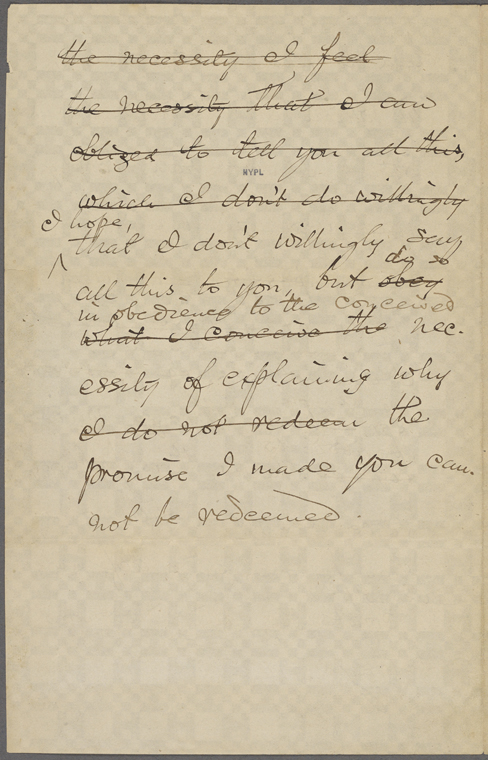 the necessity I feel
the necessity that I am
obliged to tell you all this,
NYPL
which I don't do willingly
I hope,
that I don't willingly say
do so
all this to you, but obey
in obedience to the conceived
what I conceive the nec-
essity of explaining why
I do not redeem the
promise I made you can-
not be redeemed.